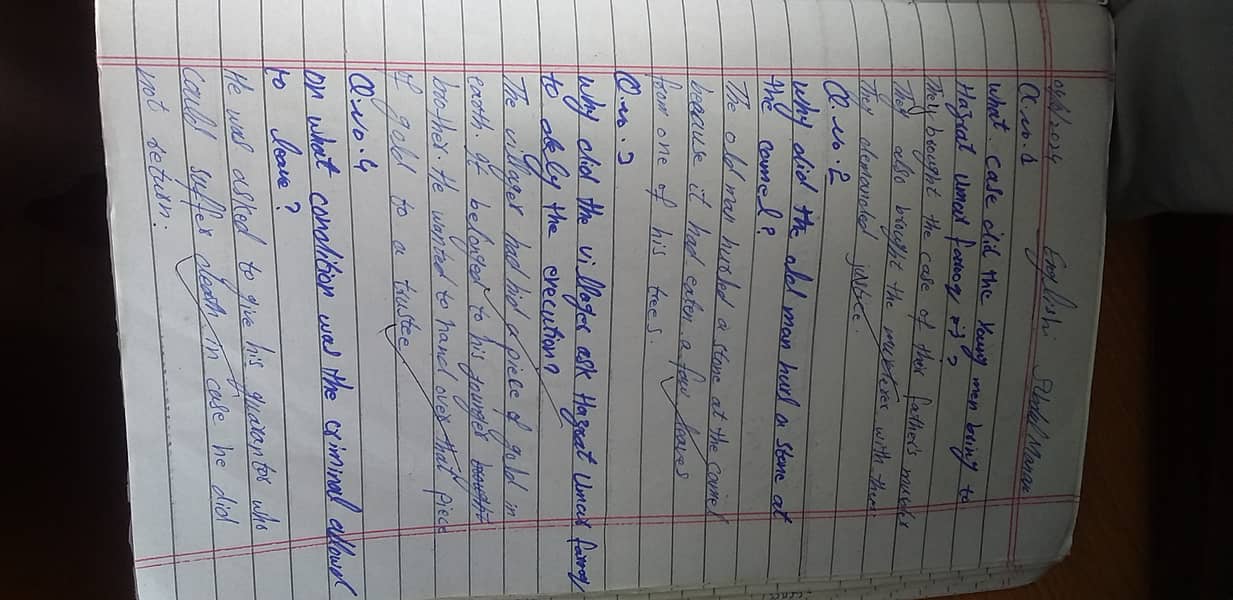 English
Q.no.1
What case did the Young men bring to
Hazrat Umar farooq ?
They brought the case of their father's
They also brought the with them
They demanded justice.
Q.no.2
Why did the old man hurl a stone at
the camel?
The old man hurled a stone at the camel
because it had eaten a few leaves
from one of his trees.
Q.no.3
Why did the villager ask Hazrat Umar farooq
to the execution?
The villager had hid a piece of gold in
earth. It belonged to his younger
brother. He wanted to hand over that piece
of gold to a trustee
Q.no.4
On what condition was the criminal allowed
to leave?
He was asked to give his guarantor who
could suffer death in case he did
not return.